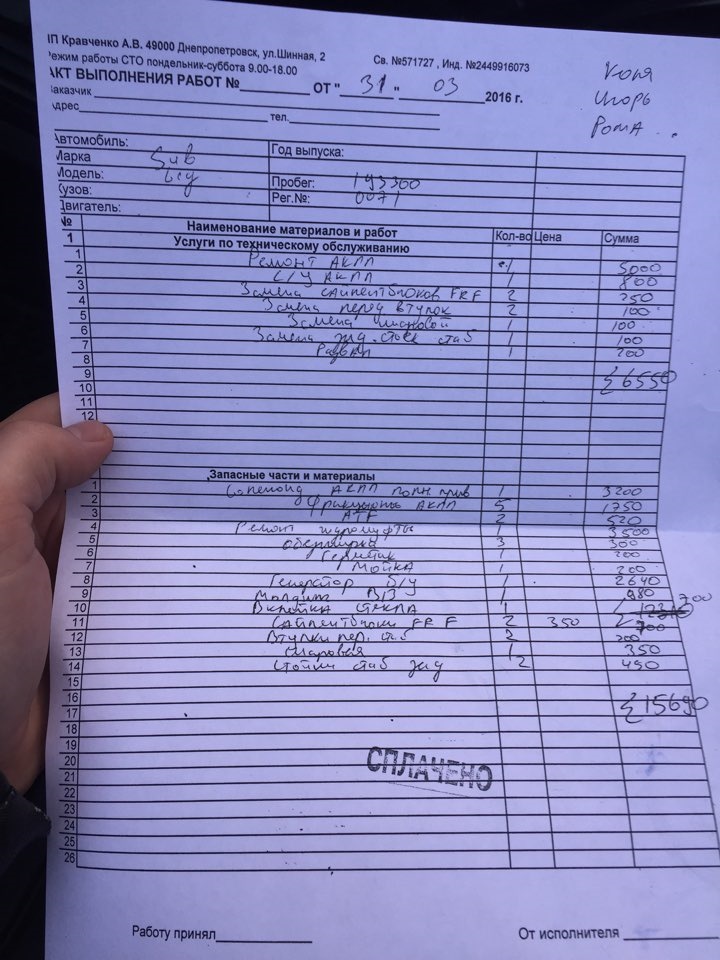 ІП Кравченко А.В. 49000 Днепропетровск, ул.Шинная, 2 Св. №571727 , Инд. №2449916073
Режим работы СТО пондельник-суббота 9.00-18.00
АКТ ВЫПОЛНЕНИЯ РАБОТ №________ ОТ " 31 " 03 2016 г.
Коля
Игорь
Рома
Заказчик
Адрес тел.
Автомобиль: Год выпуска:
Марка
Модель: Пробег: 193300
Кузов: Рег.№: 0071
Двигатель:
№ Наименование материалов и работ Кол-во Цена Сумма
1 Услуги по техническому обслуживанию
1 Ремонт АКПП 1 5000
2 С/У АКПП 1 800
3 Замена сайлентблоков FRF 2 250
4 Замена перед втулок 2 100
5 Замена шаровой 1 100
6 Замена зад. стоек стаб 1 100
7 Развал 1 200
8
9 6550
10
11
12
Запасные части и материалы
1 Соленоид АКПП полн прив 1 3200
2 Фрикционы АКПП 5 1750
3 ATF 2 520
4 Ремонт гидромуфты 1 3500
5 3 300
6 Герметик 1 200
7 Мойка 1 200
8 Генератор Б/У 1 2640
9 Молдинг 1 980
10 Вклейка стекла 1 700
11 Сайлентблоки FRF 2 350 700
12 Втулки пер. стаб 2 200
13 Шаровая 1 350
14 Стойки стаб зад 2 450
15
16 15690
17
18
19
20
21
22
23
24
25
26
СПЛАЧЕНО
Работу принял________ От исполнителя________